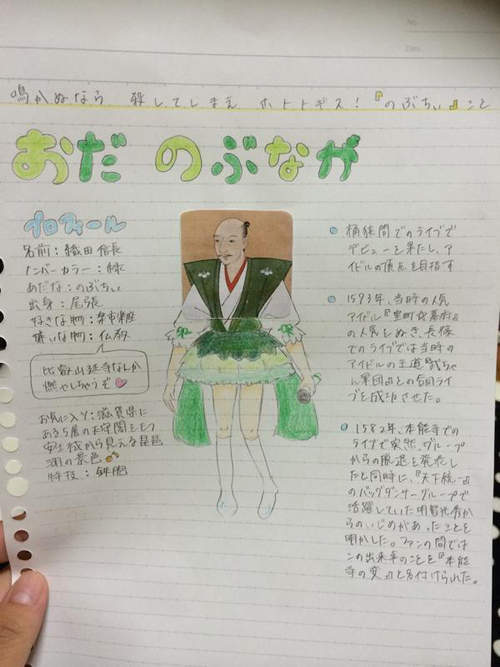 鳴かぬなら 殺してしまえ ホトトギス!『のぶちぃ』こと
おだ のぶなが
プロフィール
名前:織田信長
メンバーカラー:緑
あだな:のぶちぃ
出身:尾張
好きな物:楽市楽座
嫌いな物:仏教
比叡山延暦寺なんか
燃やしちゃうぞ♡
お気に入り:滋賀県に
ある5層の天守閣をもつ
安土城から見える琵琶
湖の景色
特技:鉄砲
桶狭間でのライブで
デビューを果たし、ア
イドルの頂点を目指す
1573年、当時の人気
アイドル『室町☆幕府』
の人気しぬき、長篠
でのライブでは当時の
アイドルの王道『武ちゃ
ん軍団』との合同ライ
ブを成功させた。
1582年、本能寺での
ライブで突然、グループ
からの脱退を発表し
たと同時に、『天下統一』
のバックダンサーグループで
活躍していた明智光秀か
らのいじめがあったことを
明かした。ファンの間では
この出来事のことを『本能
寺の変』と名付けられた。